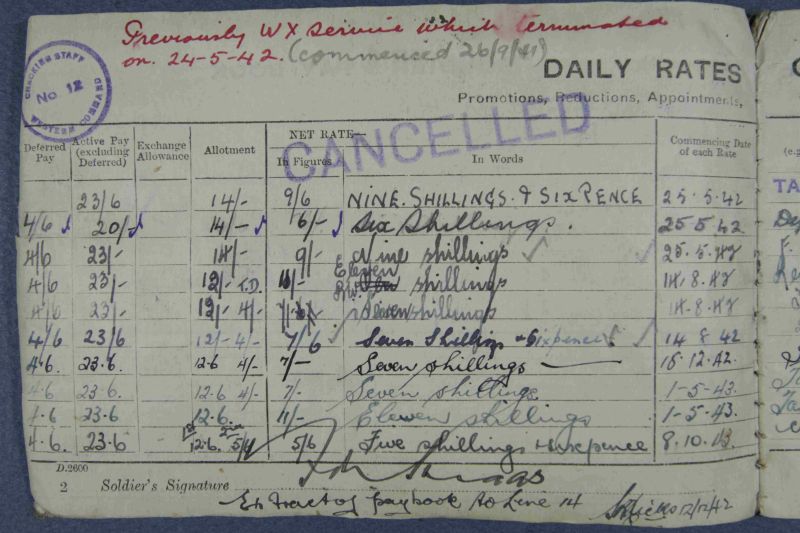 Previously WX service which terminated
on. 24-5-42. (commenced 26/9/41)
CHECKING STAFF
No 12
WESTERN COMMAND
DAILY RATES
Promotions, Reductions, Appointments,
CANCELLED
Deferred Pay Active Pay (excluding Deferred) Exchange Allowance Allotment NET RATE— In Figures In Words Commencing Date of each Rate
23/6 14/- 9/6 NINE. SHILLINGS. & SIXPENCE 25.5.42
4/6 20/- 14/- 6/- Six Shillings. 25 5 42
4/6 23/- 14/- 9/- Nine shillings 25.5.42
4/6 23/- 12/- T.D. Eleven shillings 14.8.42
4/6 23/- 12/- 4/- Seven shillings 14.8.42
4/6 23/6 12/- 4/- 7/6 Seven Shillings & Sixpence 14 8 42
4.6. 23.6. 12.6 4/- 7/- Seven shillings 15.12.42.
4.6 23.6. 12.6 4/- 7/- Seven shillings 1-5-43.
4.6 23.6 12.6. 11/- Eleven shillings 1-5-43.
4.6. 23.6 12.6. 5/6 Five shillings & sixpence 8.10.43.
D.2600
2 Soldier's Signature
Extract of paybook to Line 14 12/12/42
(e.g
TA